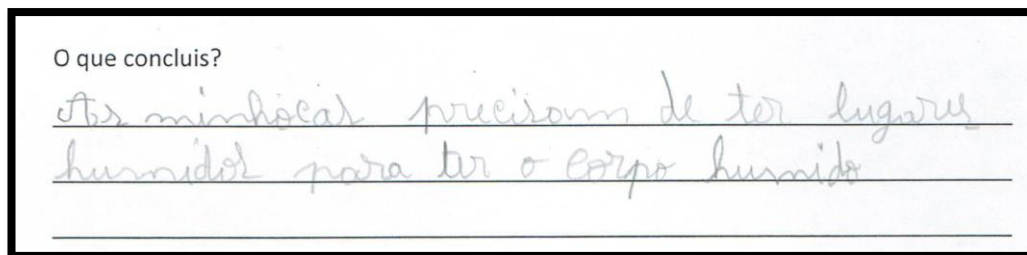 O que concluis?
As minhocas precisam de ter lugares
humidos para ter o corpo humido